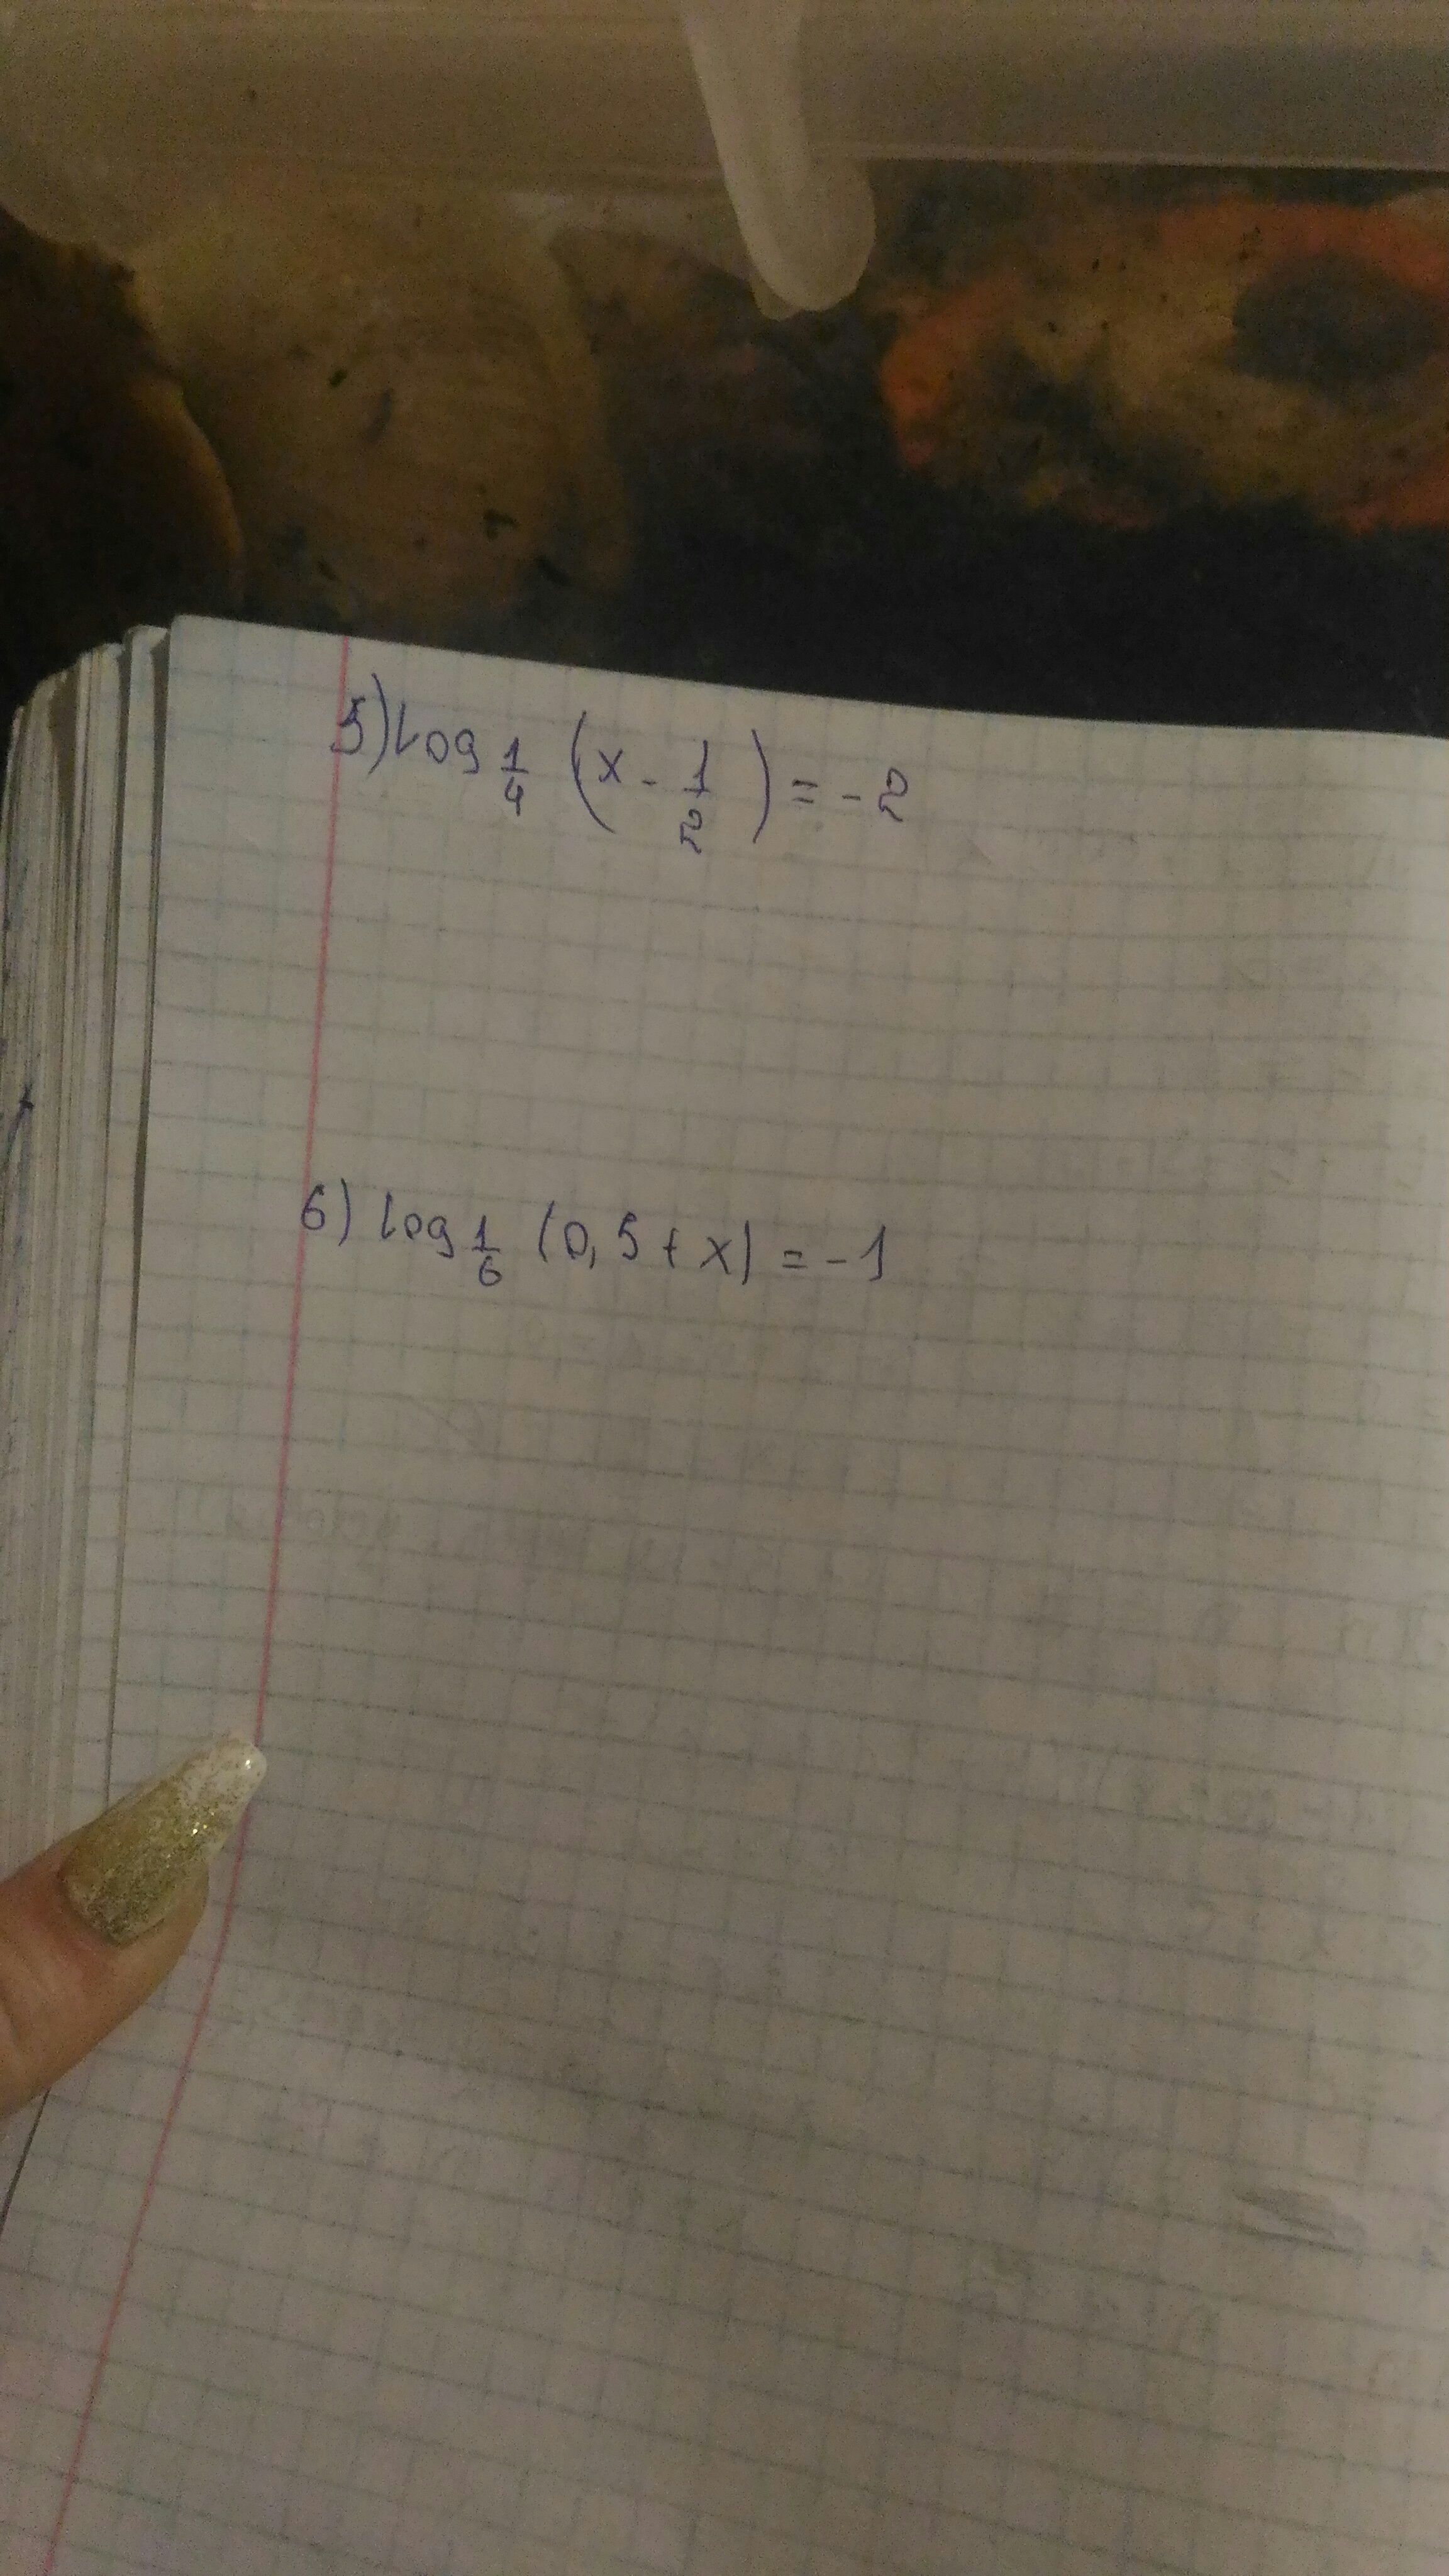 5) log 1/4 (x - 1/2) = -2
6) log 1/6 (0,5 + x) = -1